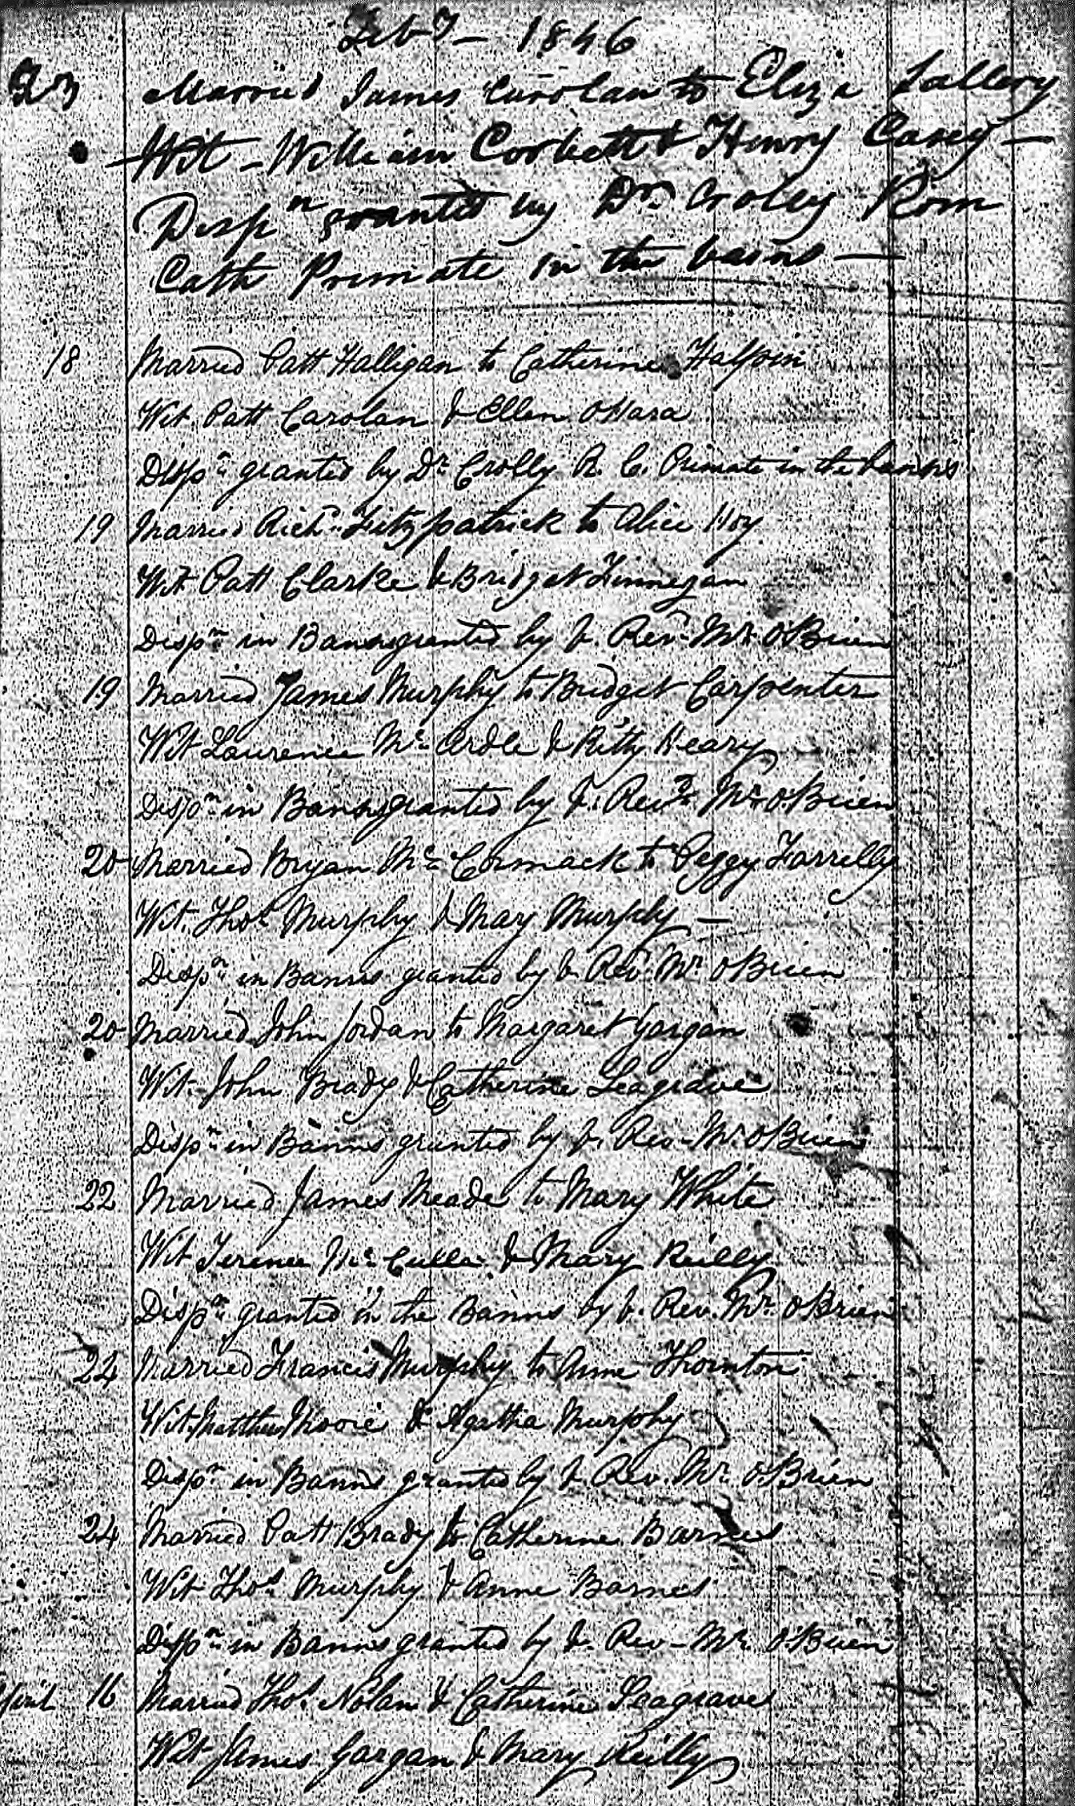 Feby — 1846
23 Married James Carolan to Eliza Lallery
Wit — William Corbett & Henry Casey —
Dispn granted by Dr. Croley Rom
Cath Primate in the banns —
18 Married Patt Halligan to Catherine Halpin
Wit. Patt Carolan & Ellen OHara
Dispn granted by Dr Crolly R. C. Primate in the banns
19 Married Richd Fitzpatrick to Alice Hoy.
Wit Patt Clarke & Bridget Finnegan
Dispn in Banns granted by V. Revd Mr OBrien
19 Married James Murphy to Bridget Carpenter
Wit Laurence Mc Ardle & Kitty Heary
Dispn in Banns granted by V. Revd Mr OBrien
20 Married Bryan Mc Cormack to Peggy Farrelly
Wit. Thos Murphy & May Murphy —
Dispn in Banns granted by V. Revd Mr OBrien
20 Married John Jordan to Margaret Gargan
Wit. John Brady & Catherine Seagrave
Dispn in Banns granted by V. Rev. Mr OBrien
22 Married James Meade to Mary White
Wit Terence Mc Cullen & Mary Reilly
Dispn granted in the Banns by V. Rev. Mr OBrien
24 Married Francis Murphy to Anne Thornton
Wit. Matthew Moore & Agatha Murphy
Dispn in Banns granted by V. Rev. Mr OBrien
24 Married Patt Brady to Catherine Barnes
Wit Thos Murphy & Anne Barnes
Dispn in Banns granted by V. Rev. Mr OBrien
April 16 Married Thos Nolan & Catherine Seagrave
Wit James Gargan & Mary Reilly